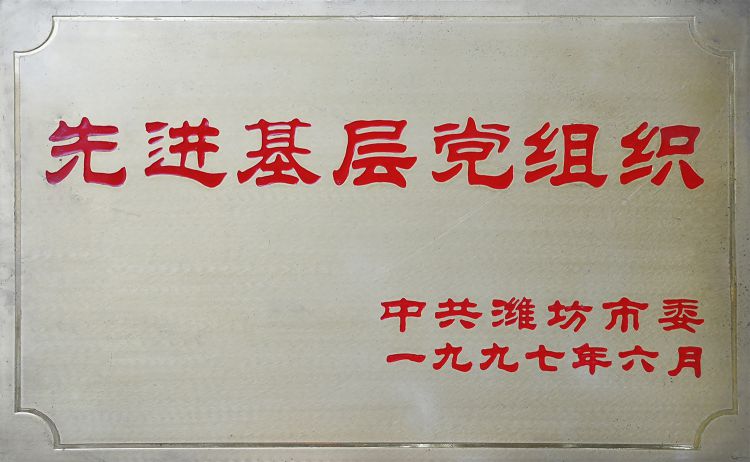 先进基层党组织
中共潍坊市委
一九九七年六月